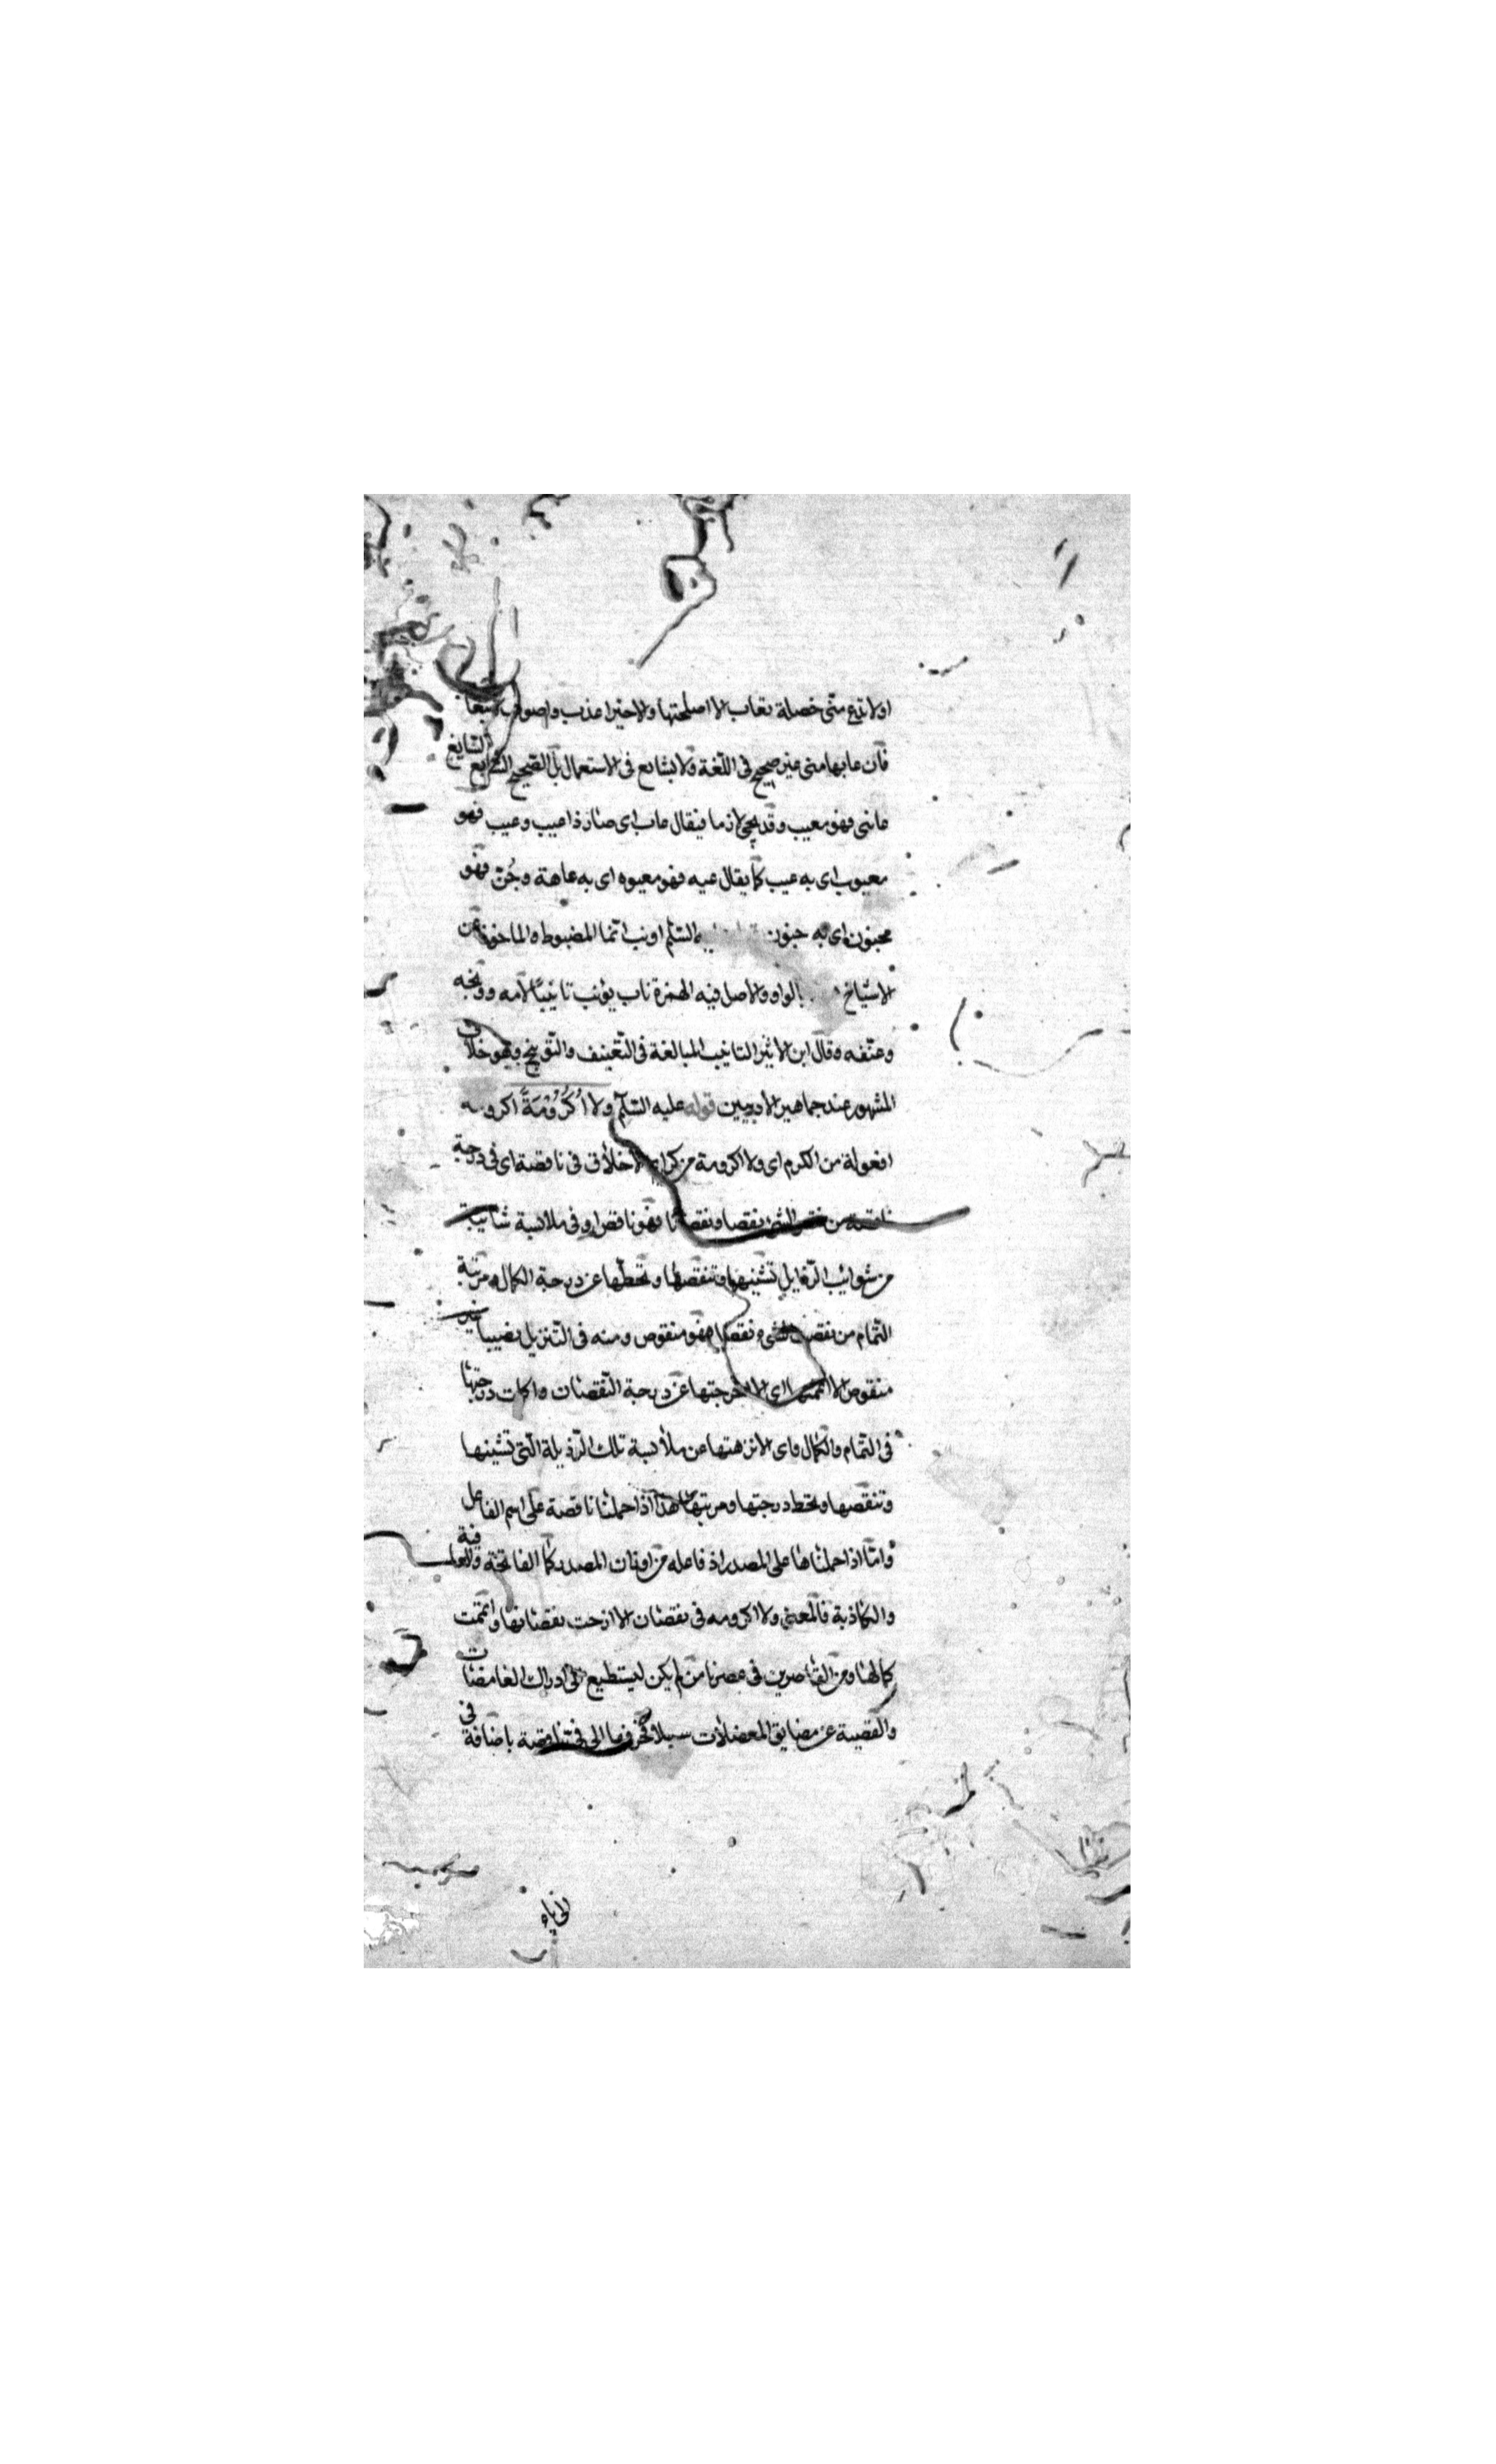 او لا تدع منّى خصلة تعاب الا اصلحتها والاخير اعذب واصوب
فان عابها منى غير صحيح فى اللغة ولا بشايع فى الاستعمال بل الصّحيح الشّايع
عابنى فهو معيب وقد يجئ لازما فيقال عاب اى صار ذا عيب وعيب فهو
معيوب اى به عيب كما يقال عيه فهو معيوه اى به عاهة وجُنّ فهو
مجنون اى به جنون السّلم اونب انما المضبوط الماخوذ عن
الاشياخ بالواو والاصل فيه الهمزة ناب يؤنب تانيبًا لامه ووبّخه
وعنّفه وقال ابن الاثير التانيب المبالغة فى التّعنيف والتّوبيخ وهو خلاف
المشهور عند جماهير الادبيين قوله عليه السّلم ولا اُكْرُوْمَةً اكرومه
افعولة من الكرم اى ولا اكرومة من كرايم الاخلاق فى ناقصة اى فى درجة
ناقصة من نقص الشئ نقصا ونقصانا فهو ناقص او فى ملابسة شائبة
من شوائب الرّذايل تشينها وتنقصها وتحطّها عن درجة الكمال ومرتبة
التّمام من نقصت الشئ نقصا فهو منقوص ومنه فى التّنزيل نصيبا غير
منقوص الا اتممتها اى الا اخرجتها عن درجة النّقصان واكملت درجتها
فى التّمام والكمال واى الا نزهتها عن ملابسة تلك الرّذيلة الّتى تشينها
وتنقصها وتحط درجتها ومرتبتها هذا اذا حملنا ناقصة على اسم الفاعل
وامّا اذا حملناها على المصدر اذ فاعله من اوزان المصدر كما الفاتحة والعافية
والكاذبة فالمعنى ولا اكرومه فى نقصان الا ازحت نقصانها واتممت
كمالها ومن القاصرين فى عصرنا من لم يكن ليستطيع الى ادراك الغامضات
والفصية عن مضايق المعضلات سبيلا فحرفها الى فىّ ناقصة باضافة فى
الى ياء